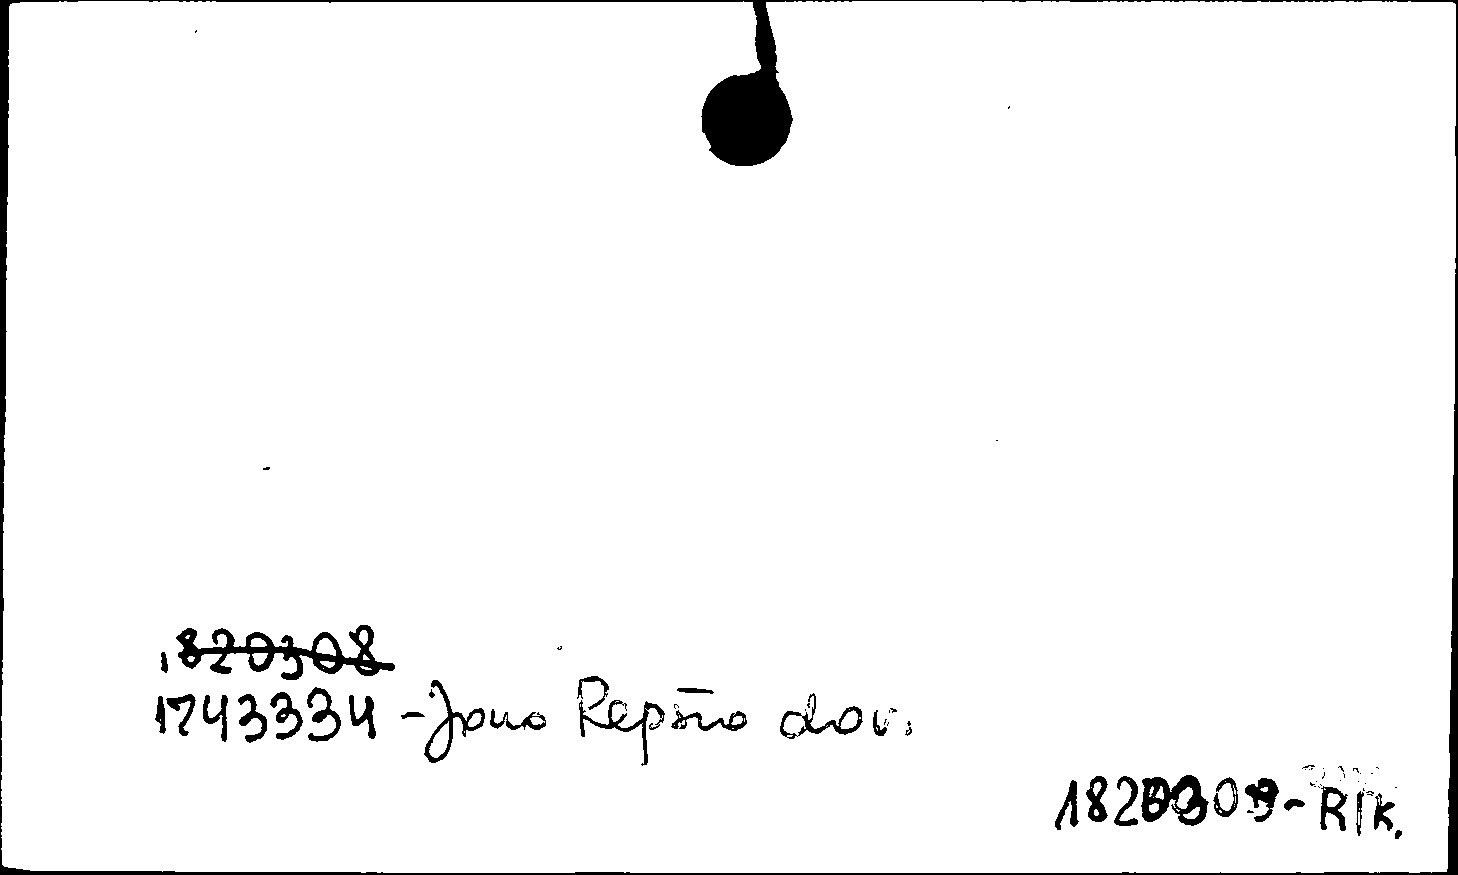 1820308
1743334 - Jāņa Repšņa dāv.
1820309 - RIK.